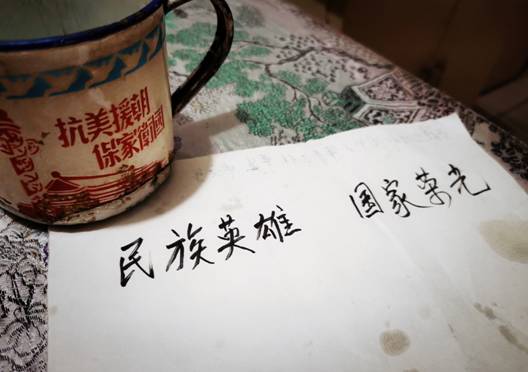 抗美援朝
保家衛國
民族英雄 国家荣光